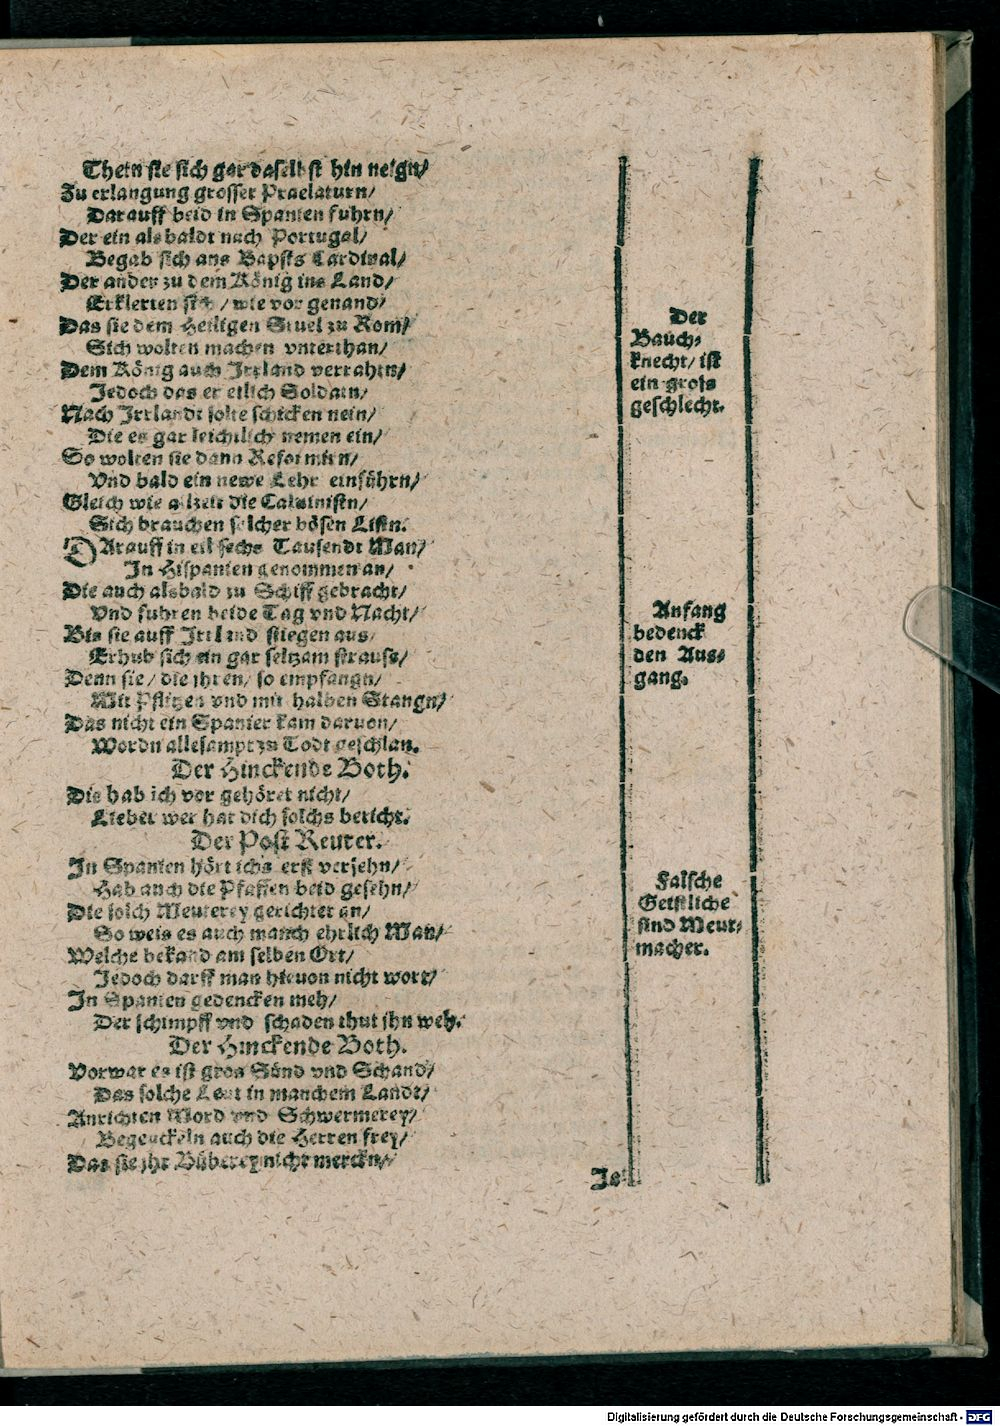 Thetn sie sich gar daselbst hin neign/
Zu erlangung grosser Praelaturn/
Darauff beid in Spanien fuhrn/
Der ein alsbaldt nach Portugal/
Begab sich ans Bapsts Cardinal/
Der ander zu dem König ins Land/
Erklerten sich / wie vor genand/
Das sie dem Heiligen Stuel zu Rom/
Sich wolten machen vnterthan/
Dem König auch Irrland verrahtn/
Jedoch das er etlich Soldatn/
Nach Irrlandt solte schicken nein/
Die es gar leichtlich nemen ein/
So wolten sie dann Reformirn/
Vnd bald ein newe Lehr einführn/
Gleich wie allzeit die Caluinistn/
Sich brauchen solcher bösen Listn.
DArauff in eil sechs Tausendt Man/
In Hispanien genommen an/
Die auch alsbald zu Schiff gebracht/
Vnd fuhren beide Tag vnd Nacht/
Bis sie auff Irrland stiegen aus/
Erhub sich ein gar seltzam strauss/
Denn sie / die ihren / so empfangn/
Mit Pflitzen vnd mit halben Stangn/
Das nicht ein Spanier kam daruon/
Wordn allesampt zu Todt geschlan.
Der Hinckende Both.
Dis hab ich vor gehöret nicht/
Lieber wer hat dich solchs bericht.
Der Post Reuter.
In Spanien hört ichs erst versehn/
Hab auch die Pfaffen beid gesehn/
Die solch Meuterey gerichtet an/
So weis es auch manch ehrlich Man/
Welche bekand am selben Ort/
Jedoch darff man hieuon nicht wort/
In Spanien gedencken meh/
Der schimpff vnd schaden thut ihn weh.
Der Hinckende Both.
Vorwar es ist gros Sünd vnd Schand/
Das solche Leut in manchem Landt/
Anrichten Mord vnd Schwermerey/
Begeuckeln auch die Herren frey/
Das sie ihr Büberey nicht merckn/
Je
Der
Bauch-
knecht/ ist
ein gross
geschlecht.
Anfang
bedenck
den Aus-
gang.
Falsche
Geistliche
sind Meut-
macher.
Digitalisierung gefördert durch die Deutsche Forschungsgemeinschaft - DFG